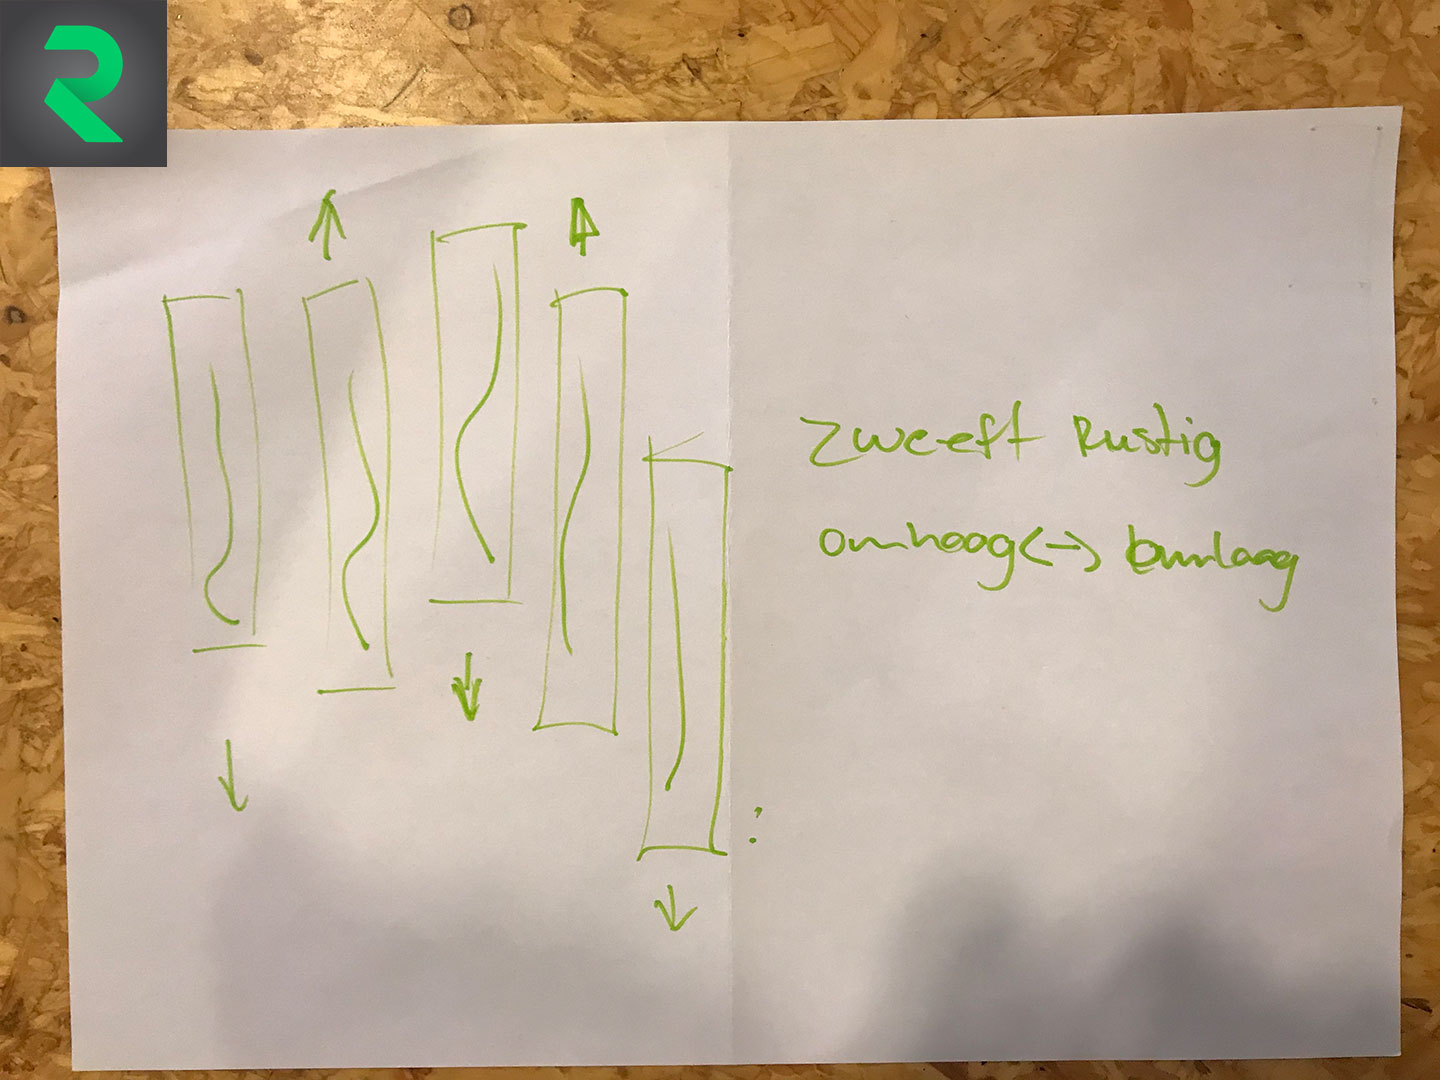 R
zweeft Rustig
omhoog <-> omlaag